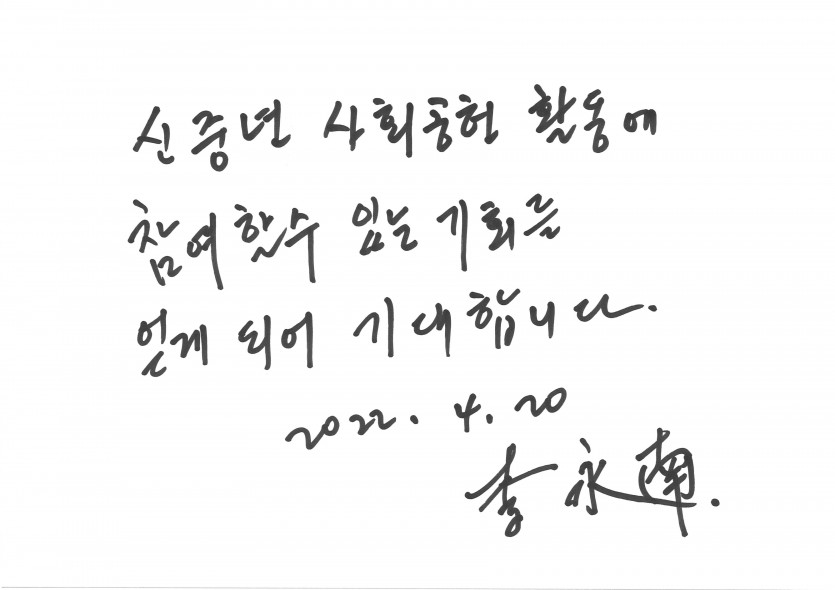 신중년 사회공헌 활동에
참여할수 있는 기회를
얻게 되어 기대합니다.
2022. 4. 20
李永南.